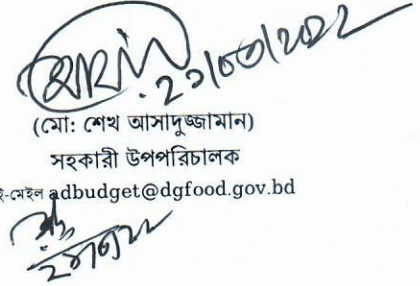 ২১/০৩/২০২২
(মো: শেখ আসাদুজ্জামান)
সহকারী উপপরিচালক
ই-মেইল adbudget@dgfood.gov.bd